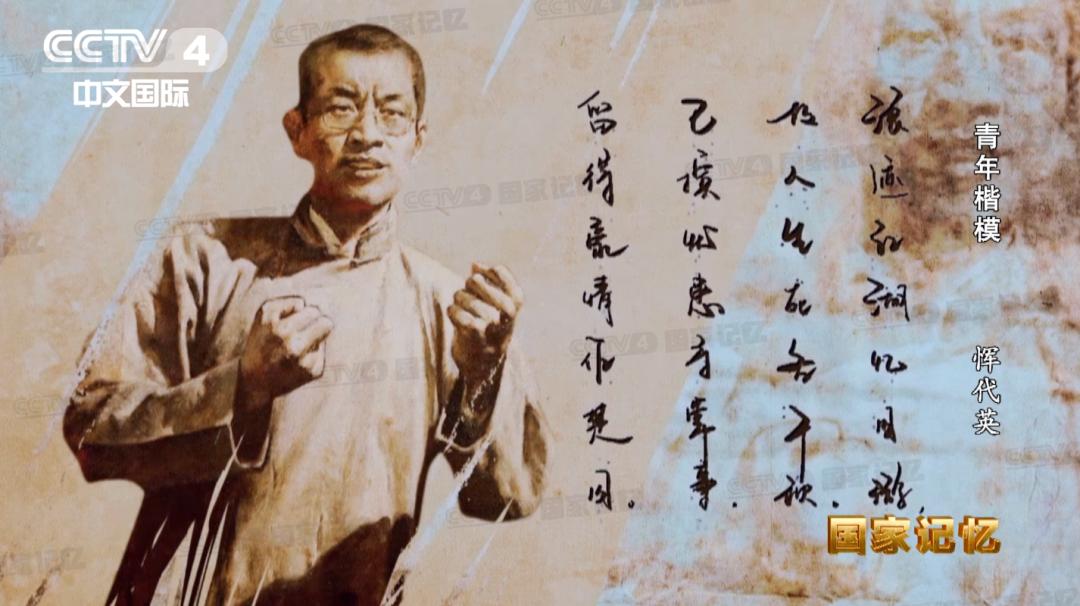 CCTV 4
中文国际
青年楷模 恽代英
浪迹江湖忆旧游,
故人生死各千秋。
已摈忧患寻常事,
留得豪情作楚囚。
国家记忆
CCTV4 国家记忆